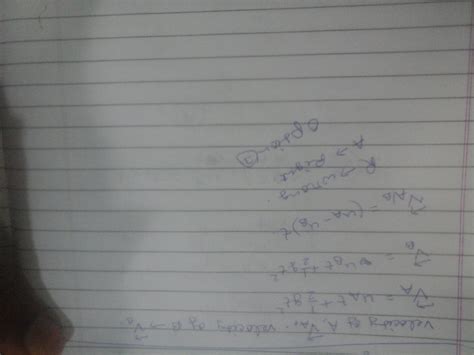 velocity of A, V⃗A, velocity of B → V⃗B
V⃗A = uAt + ½gt²
V⃗B = uBt + ½gt²
V⃗AB = (uA - uB)t
R → wrong
A → Right
Option ②